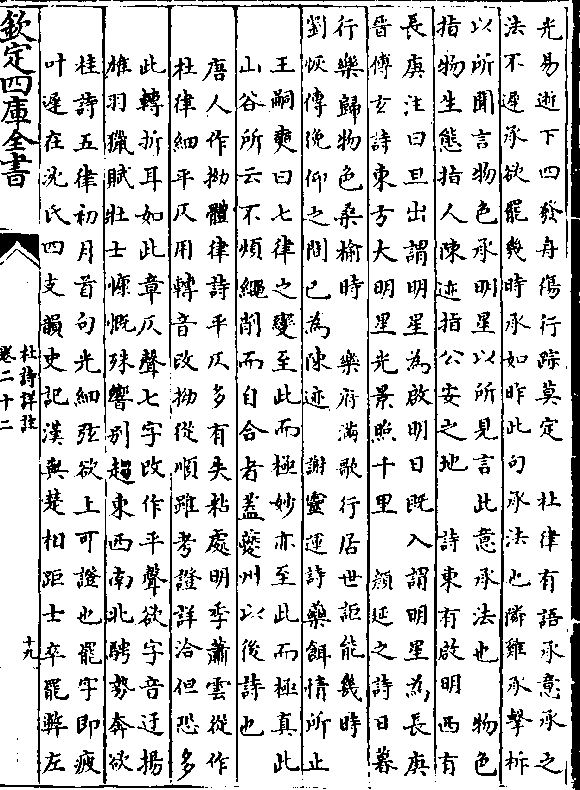 光易逝下四發舟傷行踪莫定　杜律有語承意承之
法不遲承欲罷幾時承如昨此句承法也隣雞承擊柝
以所聞言物色承明星以所見言此意承法也　物色
指物生態指人陳迹指公安之地　詩東有啟明西有
長庚注曰旦出謂明星為啟明日既入謂明星為長庚
晉傅玄詩東方大明星光景照千里　顏延之詩日暮
行樂歸物色桑榆時　樂府滿歌行居世詎能幾時
劉恢傳俛仰之間已為陳迹　謝靈運詩藥餌情所止
王嗣奭曰七律之變至此而極妙亦至此而極真此
山谷所云不煩繩削而自合者蓋夔州以後詩也
唐人作拗體律詩平仄多有失粘處明季蕭雲從作
杜律細平仄用轉音改拗從順雖考證詳洽但恐多
此轉折耳如此章仄聲七字改作平聲欲字音迂揚
雄羽獵賦壯士慷慨殊響別趨東西南北騁勢奔欲
桂詩五律初月首句光細弦欲上可證也罷字即疲
叶遲在沈氏四支韻史記漢與楚相距士卒罷弊左
欽定四庫全書
杜詩詳註
卷二十二
十九